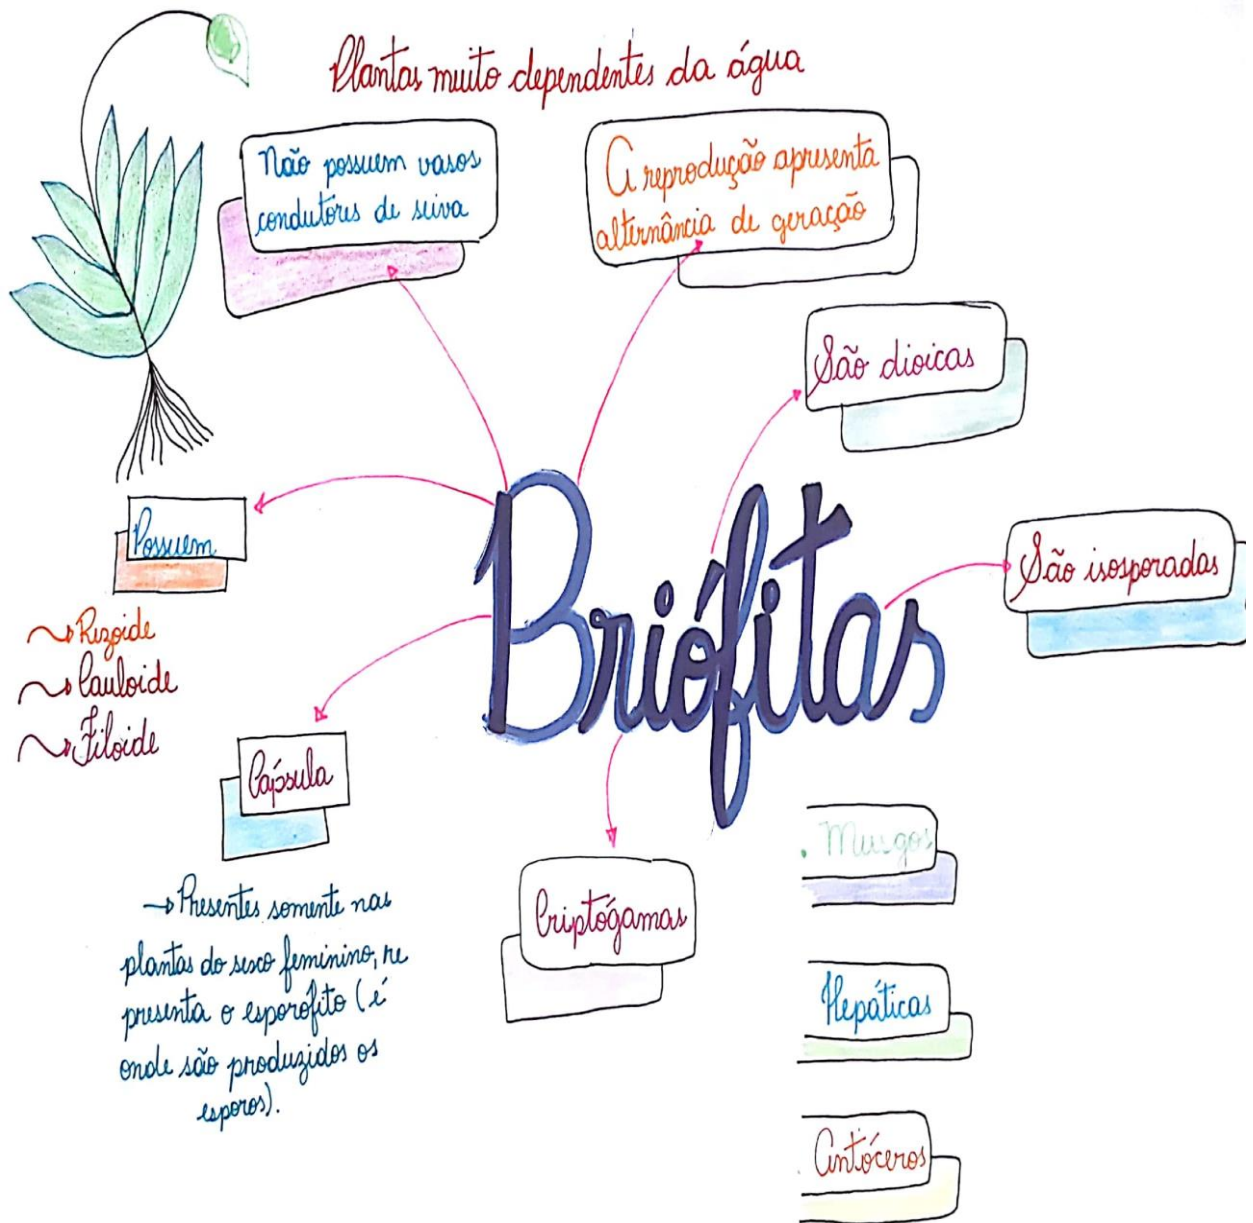 Plantas muito dependentes da água
Não possuem vasos
condutores de seiva
A reprodução apresenta
alternância de geração
São dioicas
Briófitas
São isosporadas
Possuem
Rizoide
Cauloide
Filoide
Cápsula
→ Presentes somente nas
plantas do sexo feminino, re
presenta o esporofito (é
onde são produzidos os
esporos).
Criptógamas
. Musgos
Hepáticas
. Antóceros